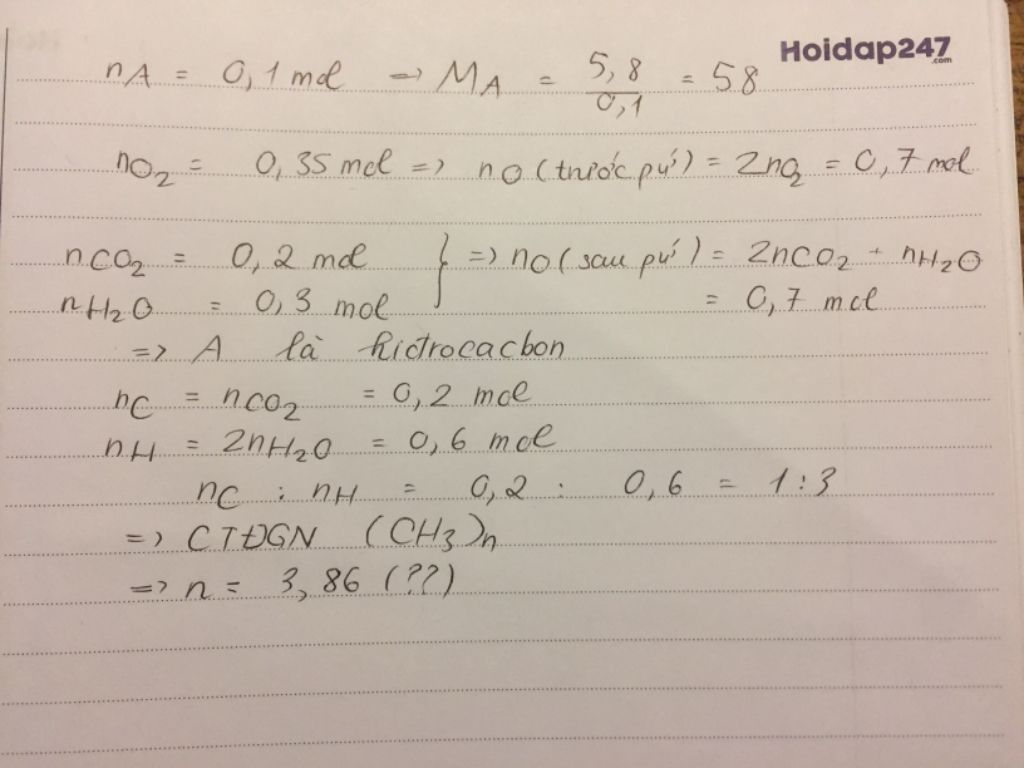 Hoidap247
.com
nA = 0,1 mol => MA = 5,8 / 0,1 = 58
nO2 = 0,35 mol => nO (trước pứ) = 2nO2 = 0,7 mol
nCO2 = 0,2 mol } => nO (sau pứ) = 2nCO2 + nH2O
nH2O = 0,3 mol = 0,7 mol
=> A là hiđrocacbon
nC = nCO2 = 0,2 mol
nH = 2nH2O = 0,6 mol
nC : nH = 0,2 : 0,6 = 1:3
=> CTĐGN (CH3)n
=> n = 3,86 (??)